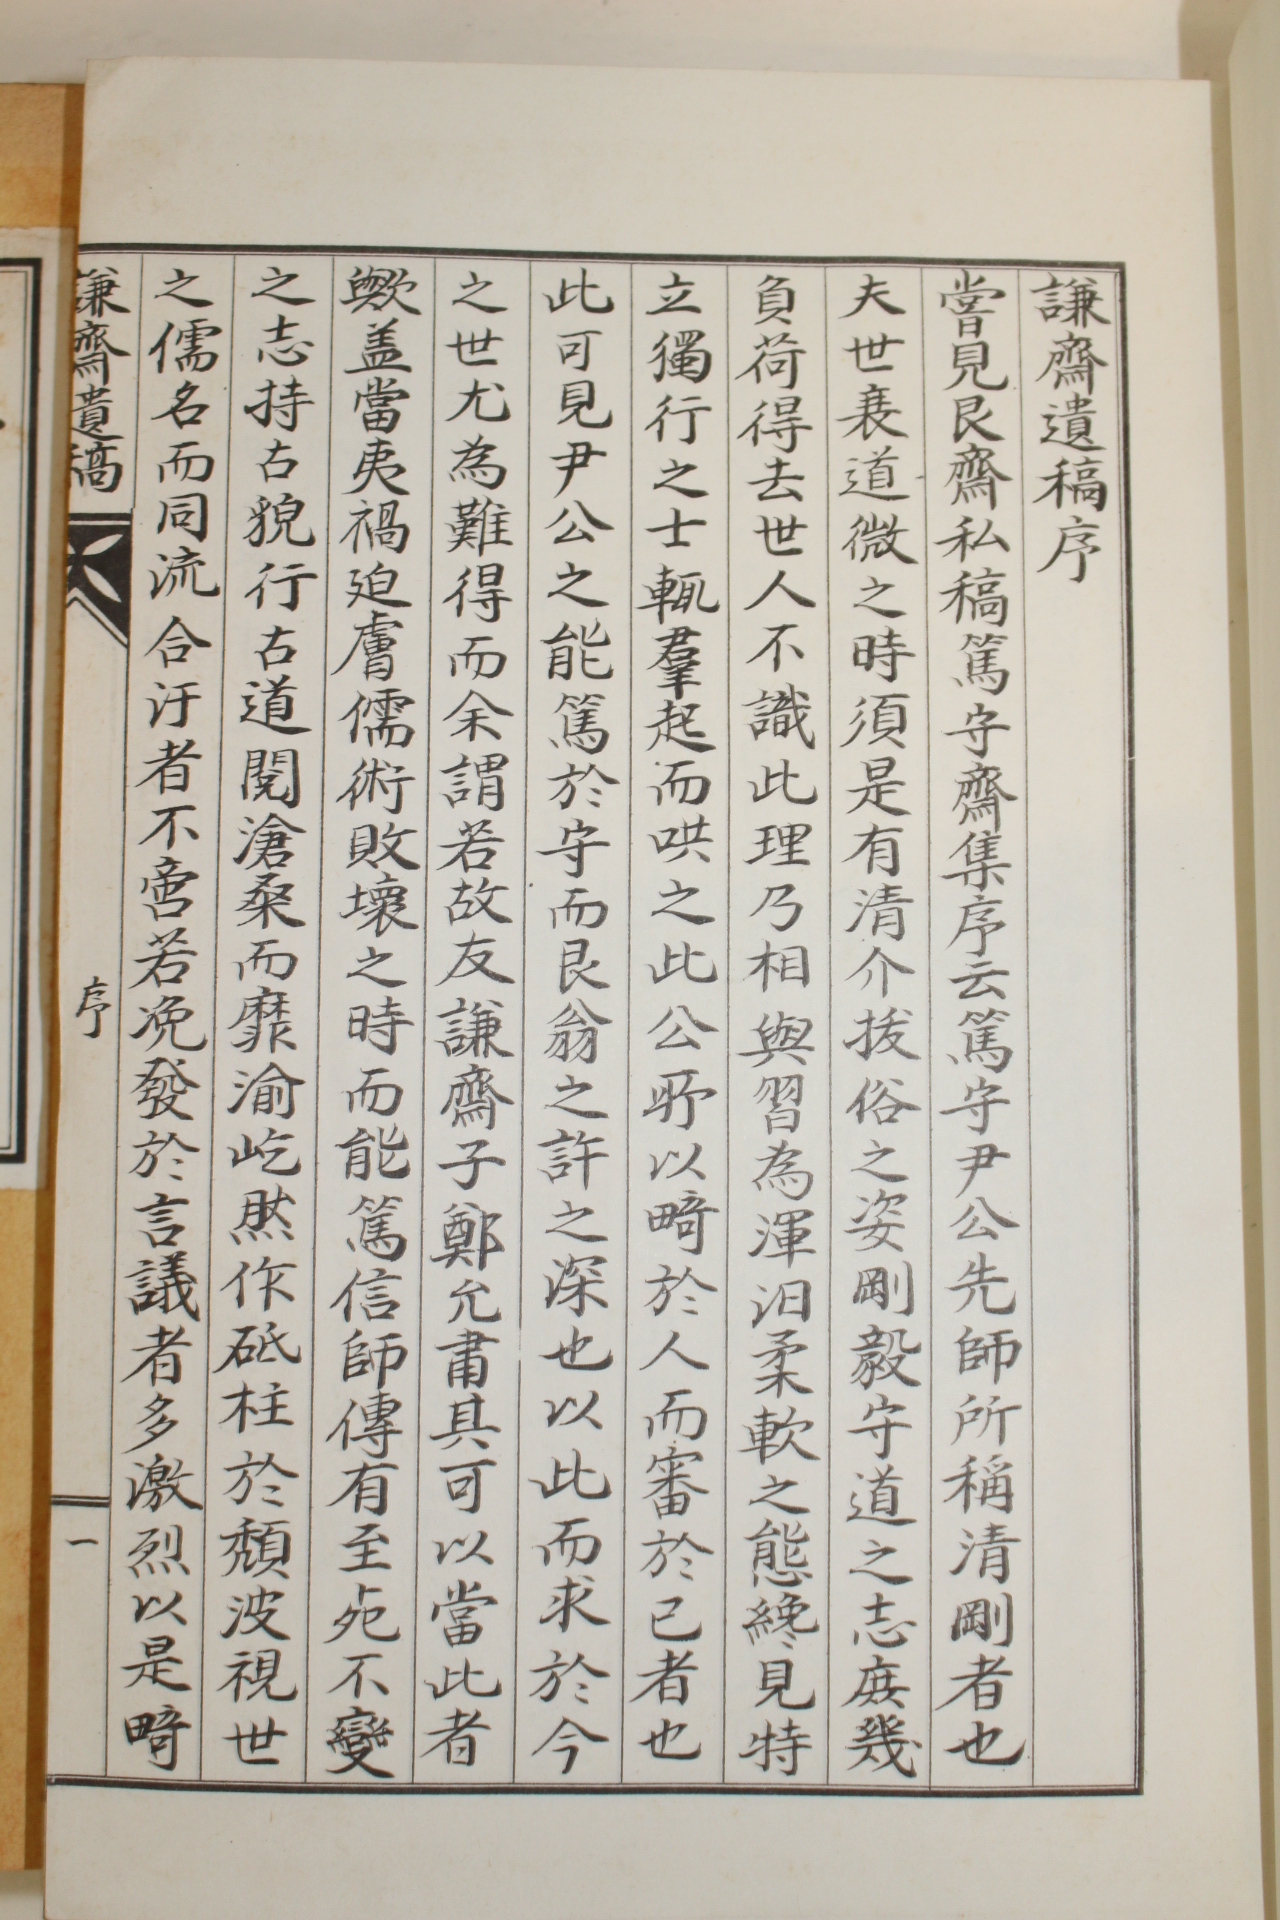 謙齋遺稿序
嘗見艮齋私稿篤守齋集序云篤守尹公先師所稱清剛者也
夫世衰道微之時須是有清介拔俗之姿剛毅守道之志庶幾
負荷得去世人不識此理乃相與習為渾汨柔軟之態纔見特
立獨行之士輒羣起而哄之此公所以畸於人而審於已者也
此可見尹公之能篤於守而艮翁之許之深也以此而求於今
之世尤為難得而余謂若故友謙齋子鄭允甫其可以當此者
歟盖當夷禍迫膚儒術敗壞之時而能篤信師傳有至死不變
之志持古貌行古道閱滄桑而靡渝屹然作砥柱於頹波視世
之儒名而同流合汙者不啻若凂發於言議者多激烈以是畸
謙齋遺稿
序
一